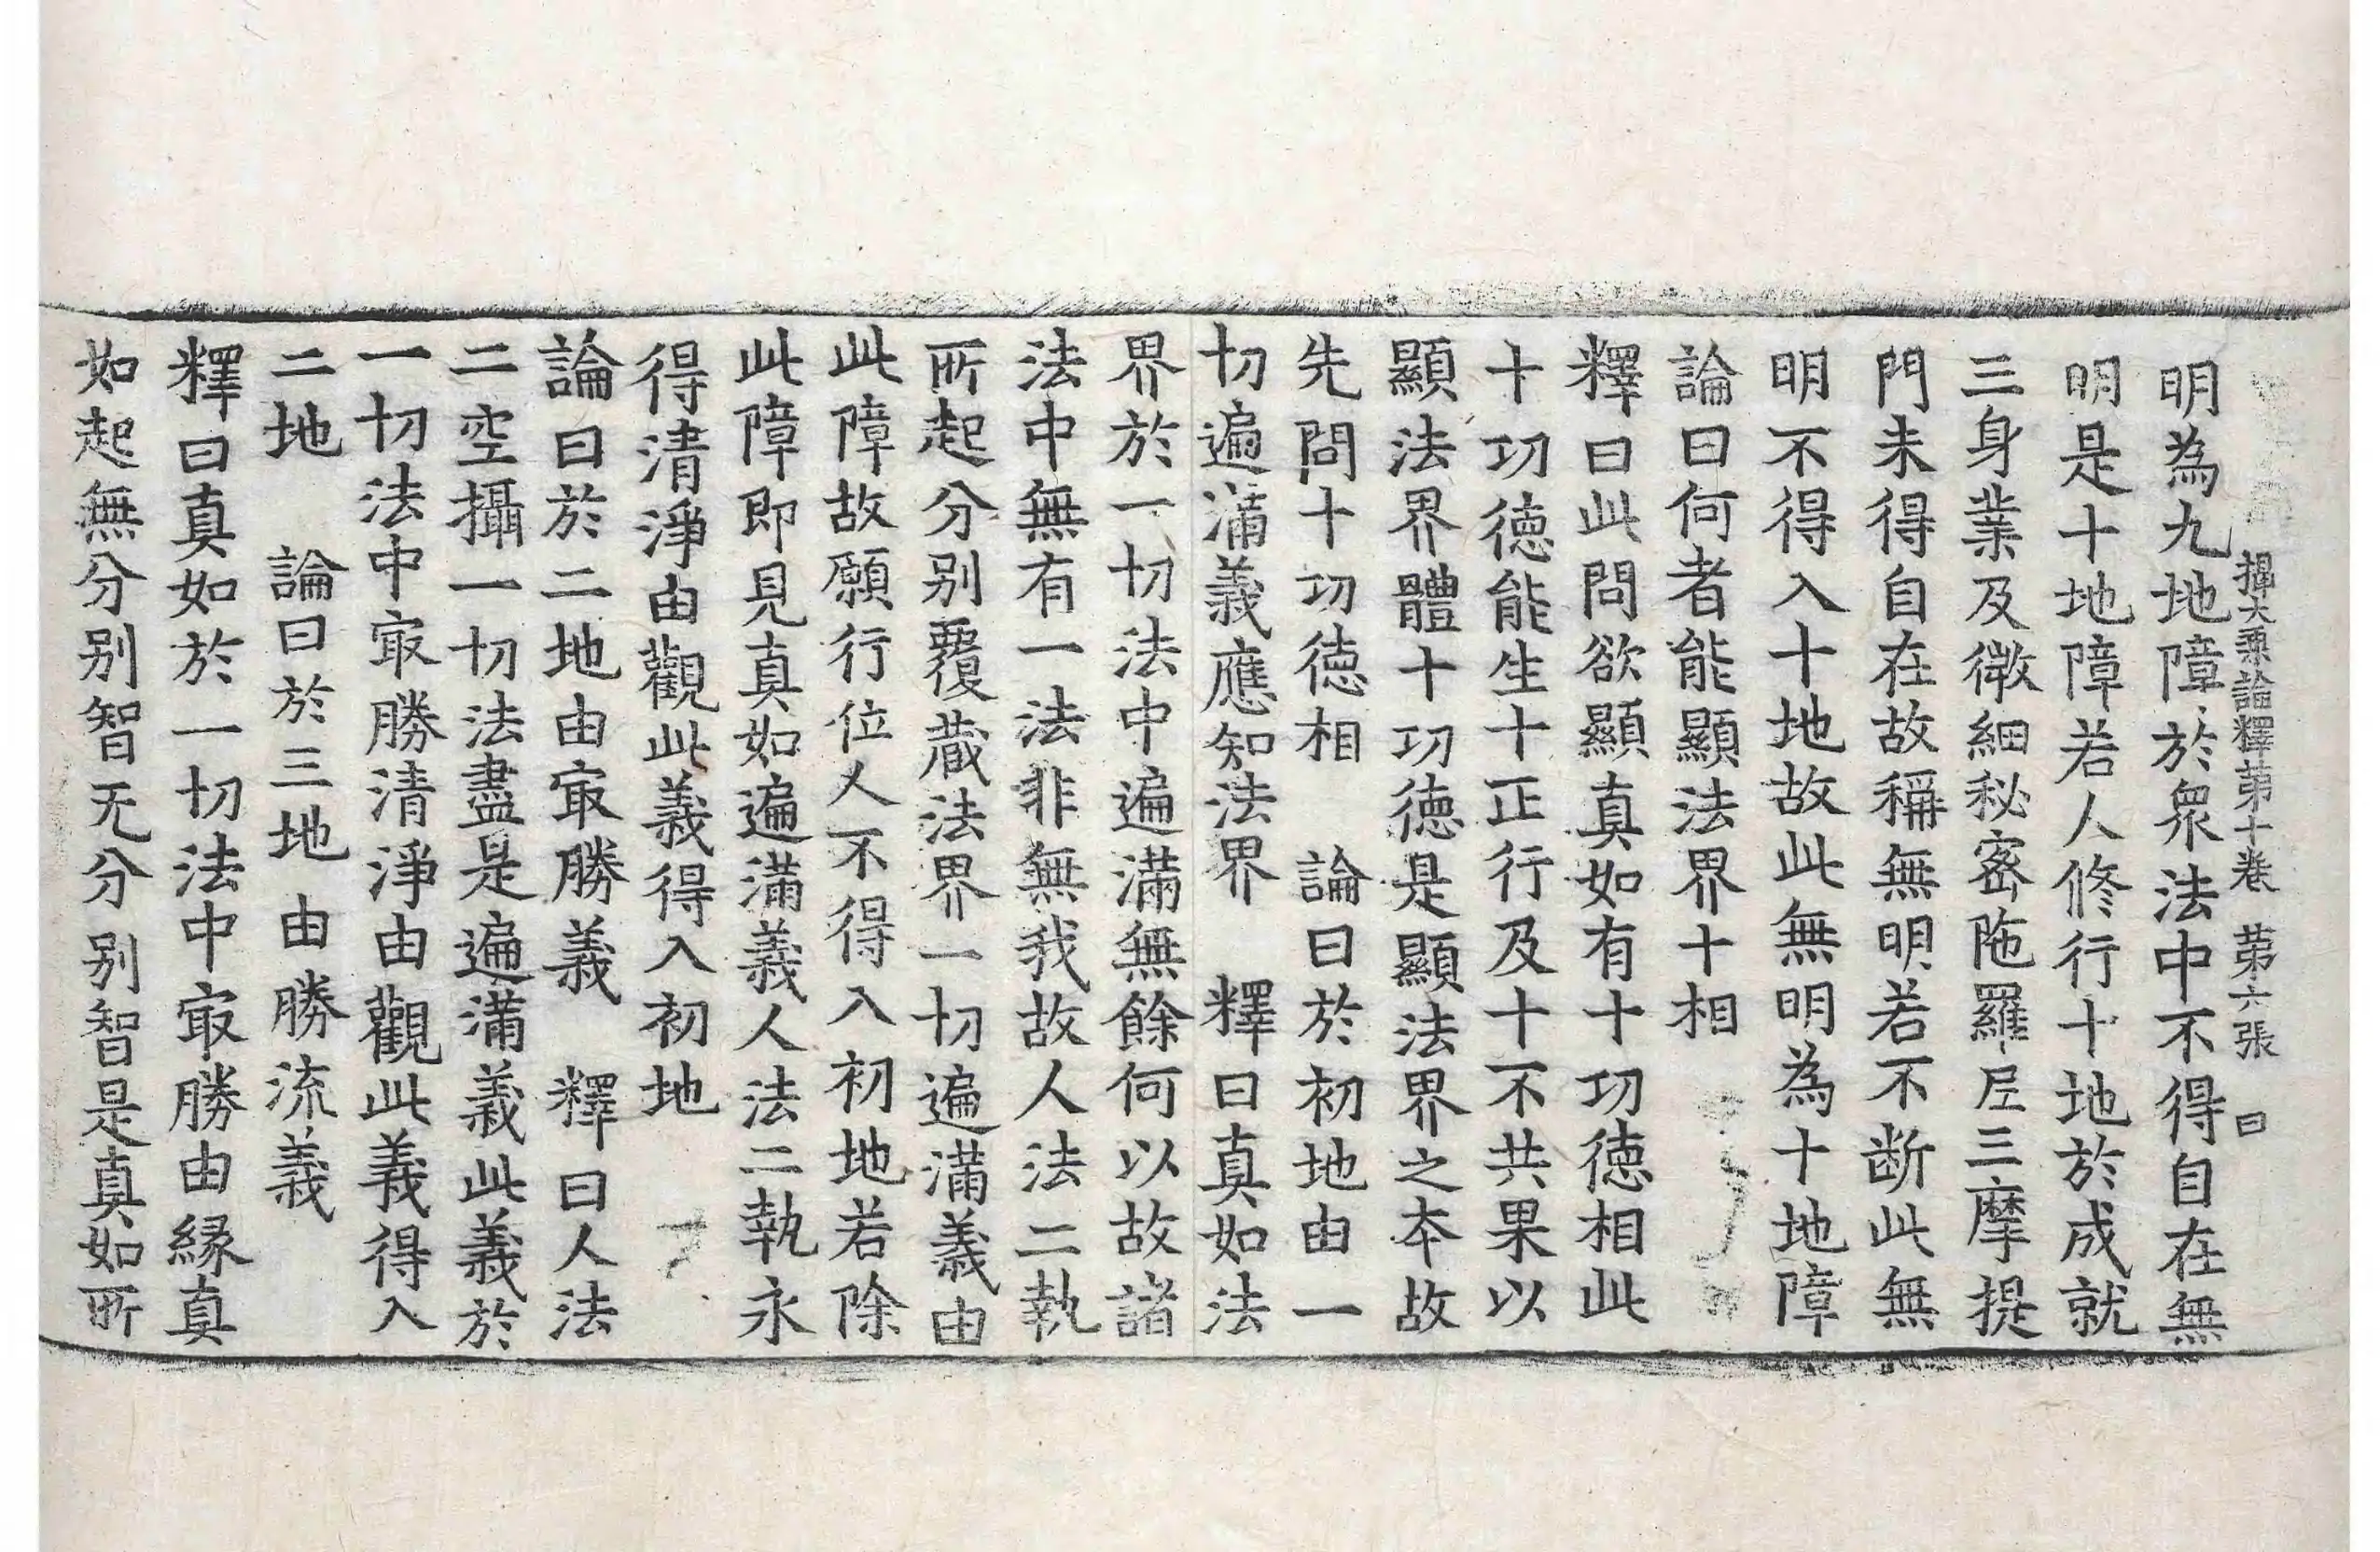 攝大乘論釋苐十卷 苐六張 曰
明為九地障於衆法中不得自在無
明是十地障若人修行十地於成就
三身業及微細秘宻陁羅尼三摩提
門未得自在故稱無明若不断此無
明不得入十地故此無明為十地障
論曰何者能顯法界十相
釋曰此問欲顯真如有十功徳相此
十功徳能生十正行及十不共果以
顯法界體十功徳是顯法界之本故
先問十功徳相 論曰於初地由一
切遍滿義應知法界 釋曰真如法
界於一切法中遍滿無餘何以故諸
法中無有一法非無我故人法二執
所起分別覆蔵法界一切遍滿義由
此障故願行位人不得入初地若除
此障即見真如遍滿義人法二執永
得清淨由觀此義得入初地
論曰於二地由㝡勝義 釋曰人法
二空攝一切法盡是遍滿義此義於
一切法中㝡勝清淨由觀此義得入
二地 論曰於三地由勝流義
釋曰真如於一切法中㝡勝由緣真
如起無分別智无分別智是真如所